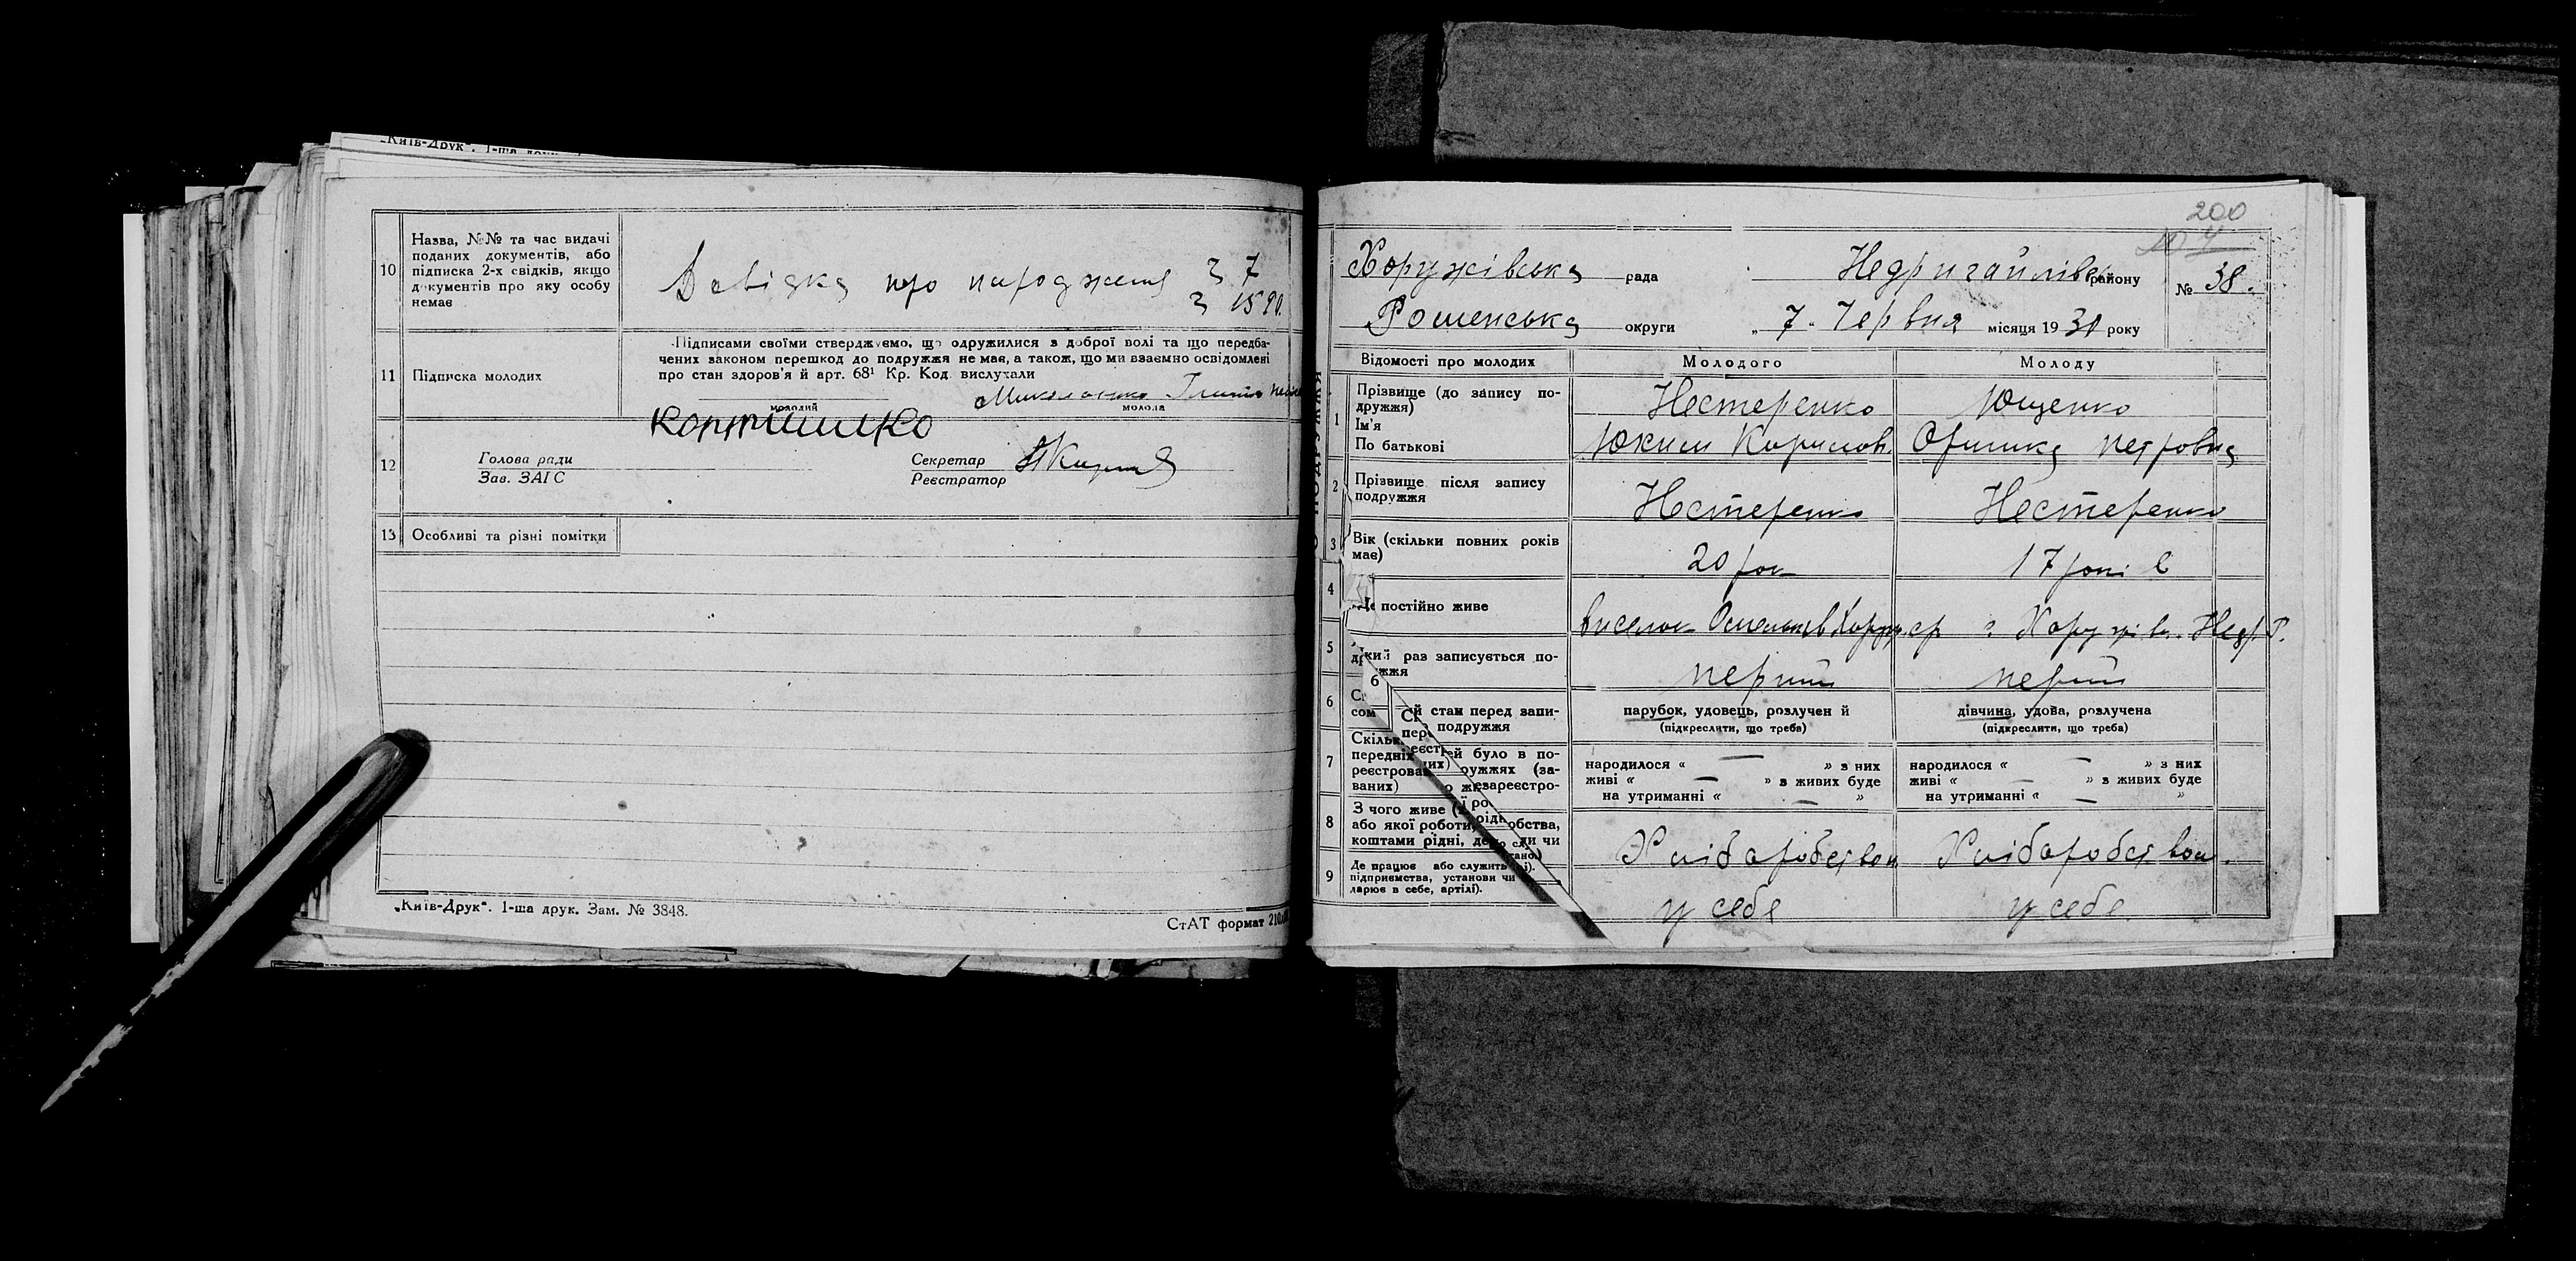 „Київ-Друк“. 1-ша
10
Назва, №№ та час видачі
поданих документів, або
підписка 2-х свідків, якщо
документів про яку особу
немає
Довідка про народження З 7
З 1590.
11
Підписка молодих
Підписами своїми стверджуємо, що одружилися з доброї волі та що передба-
чених законом перешкод до подружжя не має, а також, що ми взаємно освідомлені
про стан здоров'я й арт. 68¹ Кр. Код. вислухали
молодий
молода
12
Голова ради
Зав. ЗАГС
Секретар
Реєстратор
13
Особливі та різні помітки
„Київ-Друк“. 1-ша друк. Зам. № 3848.
СтАТ формат
200
Хоружівська рада Недригайлівс району
№ 38.
Роменська округи „ 7. Червня місяця 1930 року
Відомості про молодих
Молодого
Молоду
1
Прізвище (до запису по-
дружжя)
Ім'я
По батькові
Нестеренко
Ющенко
Юхим Карпов.
Оришка Петровна
2
Прізвище після запису
подружжя
Нестеренко
Нестеренко
3
Вік (скільки повних років
має)
20 рок
17 років
4
Де постійно живе
виселок
с. Хоружівк. Недр. Р.
5
який раз записується по-
дружжя
перший
перший
6
стан перед запи-
сом подружжя
парубок, удовець, розлучений
(підкреслити, що треба)
дівчина, удова, розлучена
(підкреслити, що треба)
7
Скільки
ей було в по-
передніх
ружжях (за-
реєстрова
ваних)
народилося « — » з них
живі « — » з живих буде
на утриманні « — »
народилося « — » з них
живі « — » з живих буде
на утриманні « — »
8
З чого живе
або якої роботи,
обства,
коштами рідні,
Хліборобством
Хліборобством.
9
Де працює або служить
підприємства, установи чи
дарює в себе, артілі).
у себе
у себе.